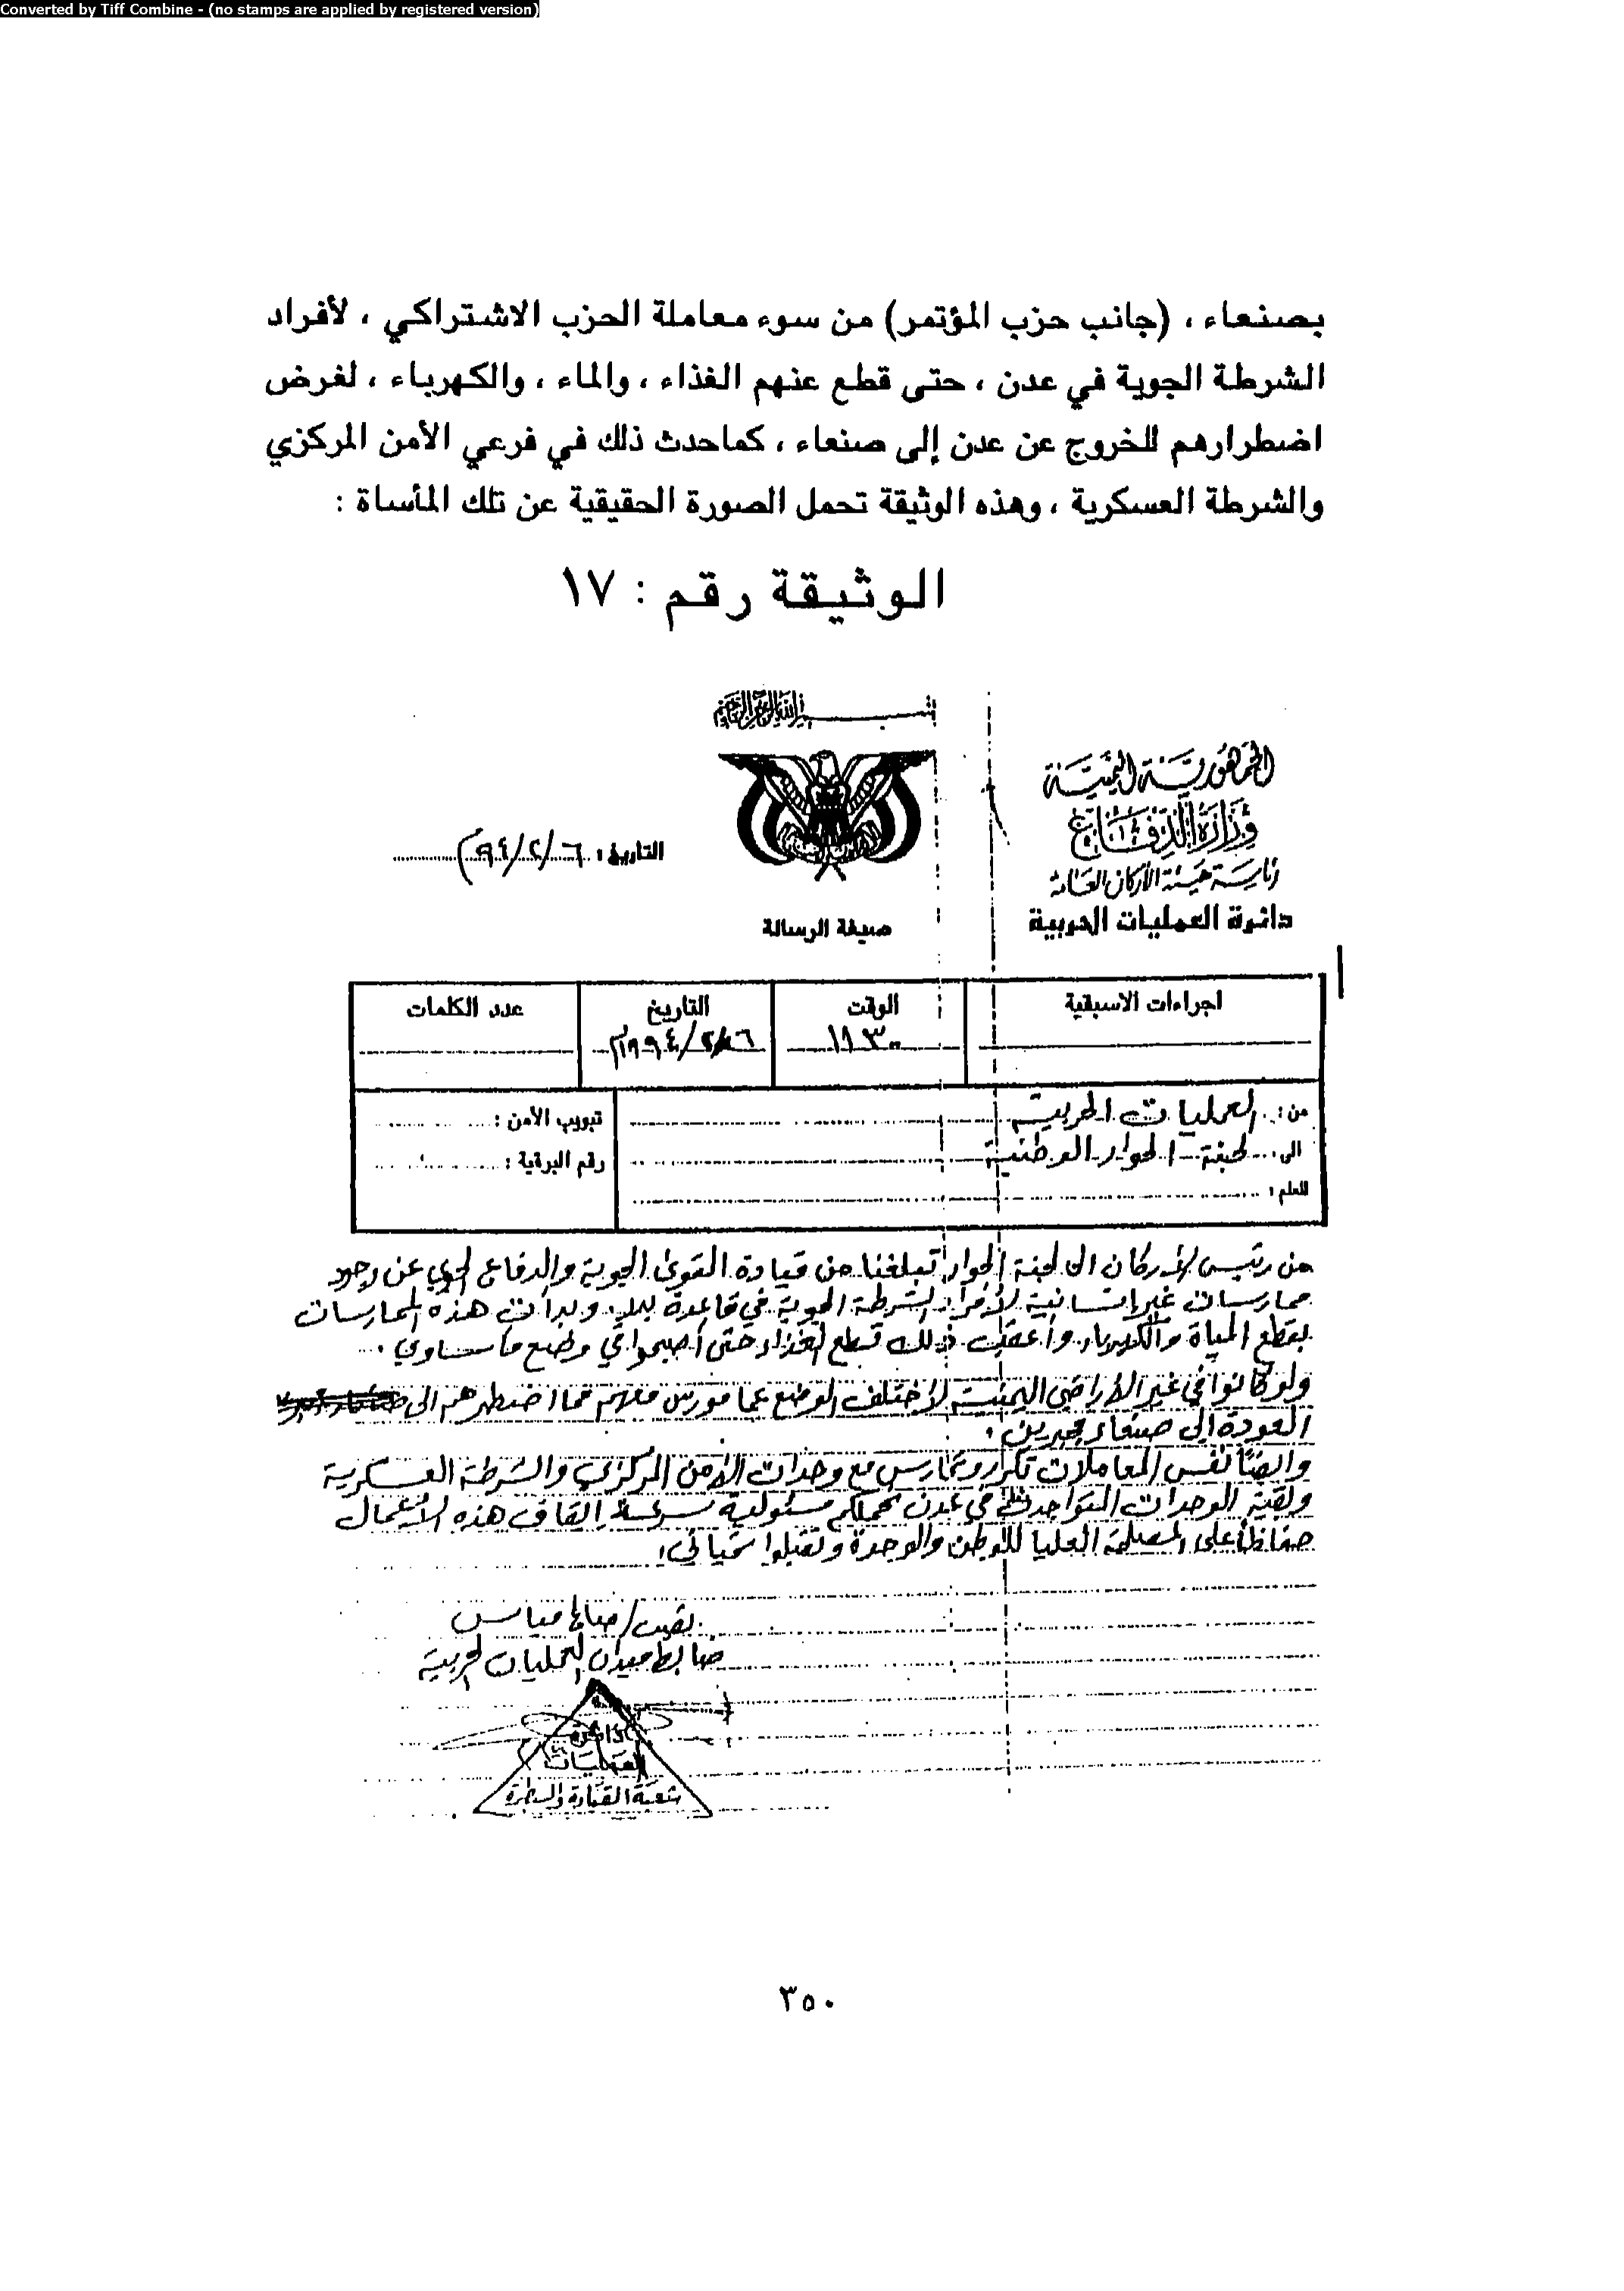 Converted by Tiff Combine - (no stamps are applied by registered version)
بصنعاء ، (جانب حزب المؤتمر) من سوء معاملة الحزب الاشتراكي ، لأفراد
الشرطة الجوية في عدن ، حتى قطع عنهم الغذاء ، والماء ، والكهرباء ، لغرض
اضطرارهم للخروج عن عدن إلى صنعاء ، كماحدث ذلك في فرعي الأمن المركزي
والشرطة العسكرية ، وهذه الوثيقة تحمل الصورة الحقيقية عن تلك المأساة :
الوثيقة رقم : ١٧
بسم الله الرحمن الرحيم
الجمهورية اليمنية
وزارة الدفاع
رئاسة هيئة الأركان العامة
دائرة العمليات الحربية
التاريخ : ٩٤/٢/٦م
صيغة الرسالة
اجراءات الاسبقية الوقت التاريخ عدد الكلمات
١١٣٠ ١٩٩٤/٢/٦م
من : العمليات الحربية تبويب الأمن :
الى : لجنة الحوار الوطنية رقم البرقية :
للعلم :
من رئيس الأركان الى لجنة الحوار تبلغنا من قيادة القوى الجوية والدفاع الجوي عن وجود
ممارسات غير انسانية لأفراد الشرطة الجوية في قاعدة بدر وبدأت هذه الممارسات
بقطع المياة والكهرباء وأعقب ذلك قطع الغذاء حتى أصبحوا في وضع مأساوي .
ولو كانوا في غير الأراضي اليمنية لأختلف الوضع عما مورس معهم مما اضطرهم الى
العودة إلى صنعاء مجبرين .
وايضاً نفس المعاملات تكرر وتمارس مع وحدات الأمن المركزي والشرطة العسكرية
وبقية الوحدات المتواجدة في عدن نحملكم مسئولية سرعة إيقاف هذه الأعمال
حفاظاً على المصلحة العليا للوطن والوحدة وتقبلوا تحياتي ،
نقيب/ صالح
ضابط ميدان العمليات الحربية
دائرة
العمليات
شعبة القيادة والسيطرة
٣٥٠